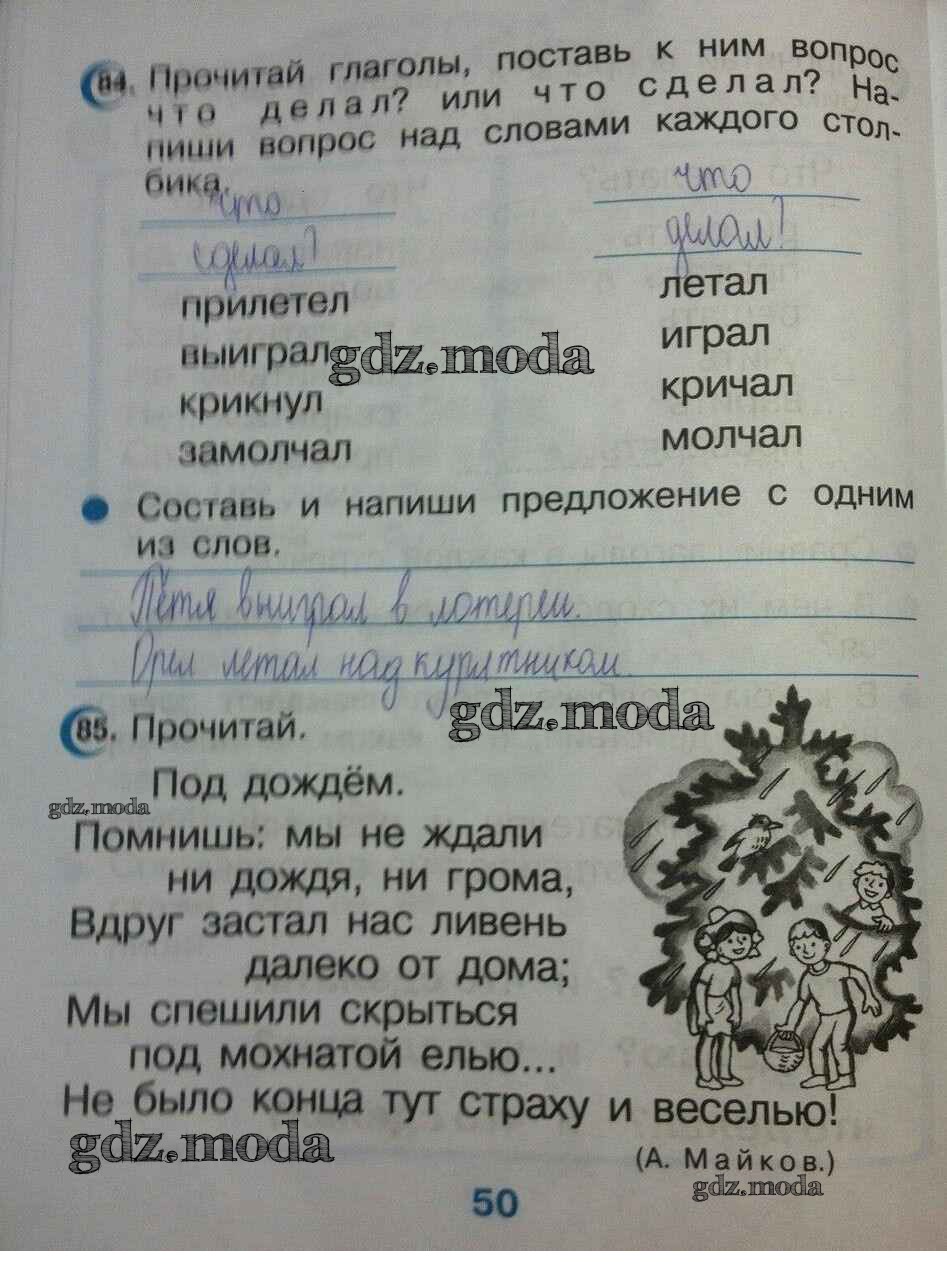 84. Прочитай глаголы, поставь к ним вопрос
что делал? или что сделал? На-
пиши вопрос над словами каждого стол-
бика.
что
сделал?
что
делал?
прилетел
летал
выиграл
играл
gdz.moda
крикнул
кричал
замолчал
молчал
Составь и напиши предложение с одним
из слов.
Петя выиграл в лотереи.
Орел летал над курятником.
gdz.moda
85. Прочитай.
Под дождём.
gdz.moda
Помнишь: мы не ждали
ни дождя, ни грома,
Вдруг застал нас ливень
далеко от дома;
Мы спешили скрыться
под мохнатой елью...
Не было конца тут страху и веселью!
gdz.moda
(А. Майков.)
gdz.moda
50